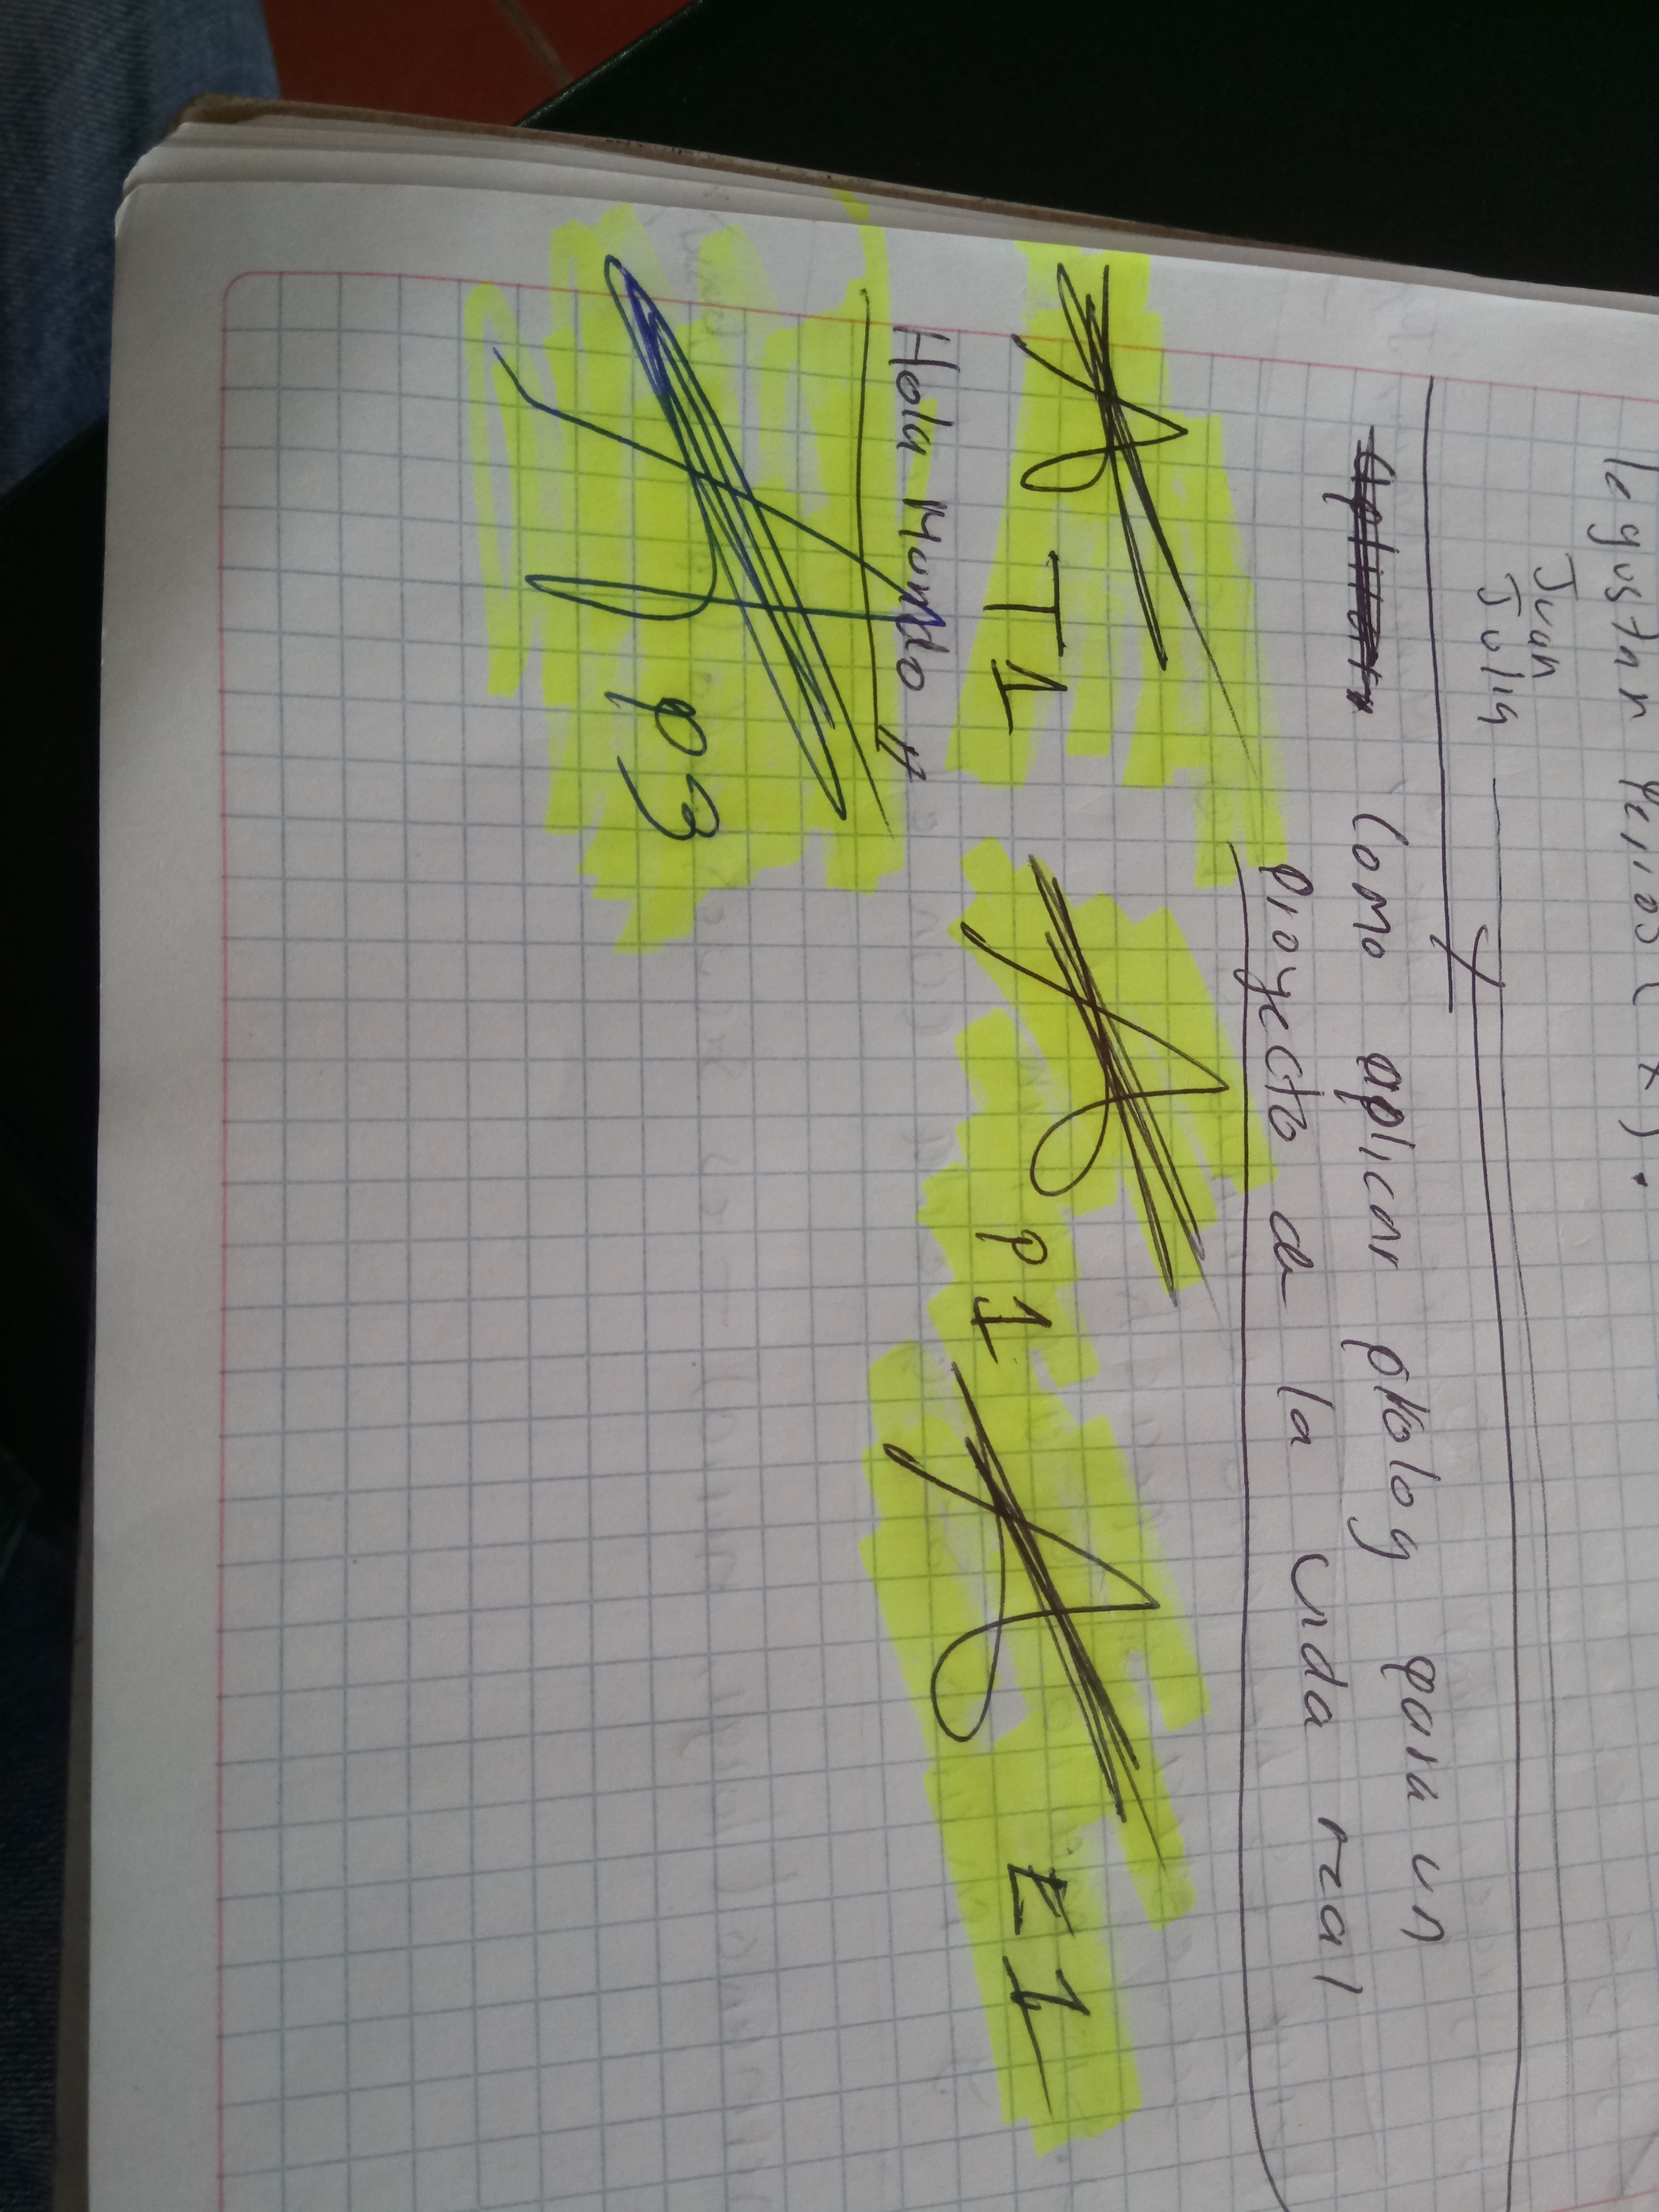 legustan perros(x).
Juan
Julia
Como aplicar prolog para un
proyecto de la vida real
T1
P1
E1
Hola Mundo
P3